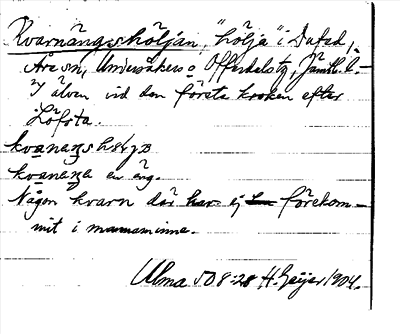 Kvarnängshöljan, "hölja" i Dufed,
Åre sn, Undersåkers o Offerdals tg, Jämtl. l.
I älven vid den första kroken efter
Löfsta.
kvanaŋshølja
kvanaŋa en äng.
Någon kvarn där har ej förekom-
mit i mannaminne.
Ulma 508:28 H. Geijer 1904.